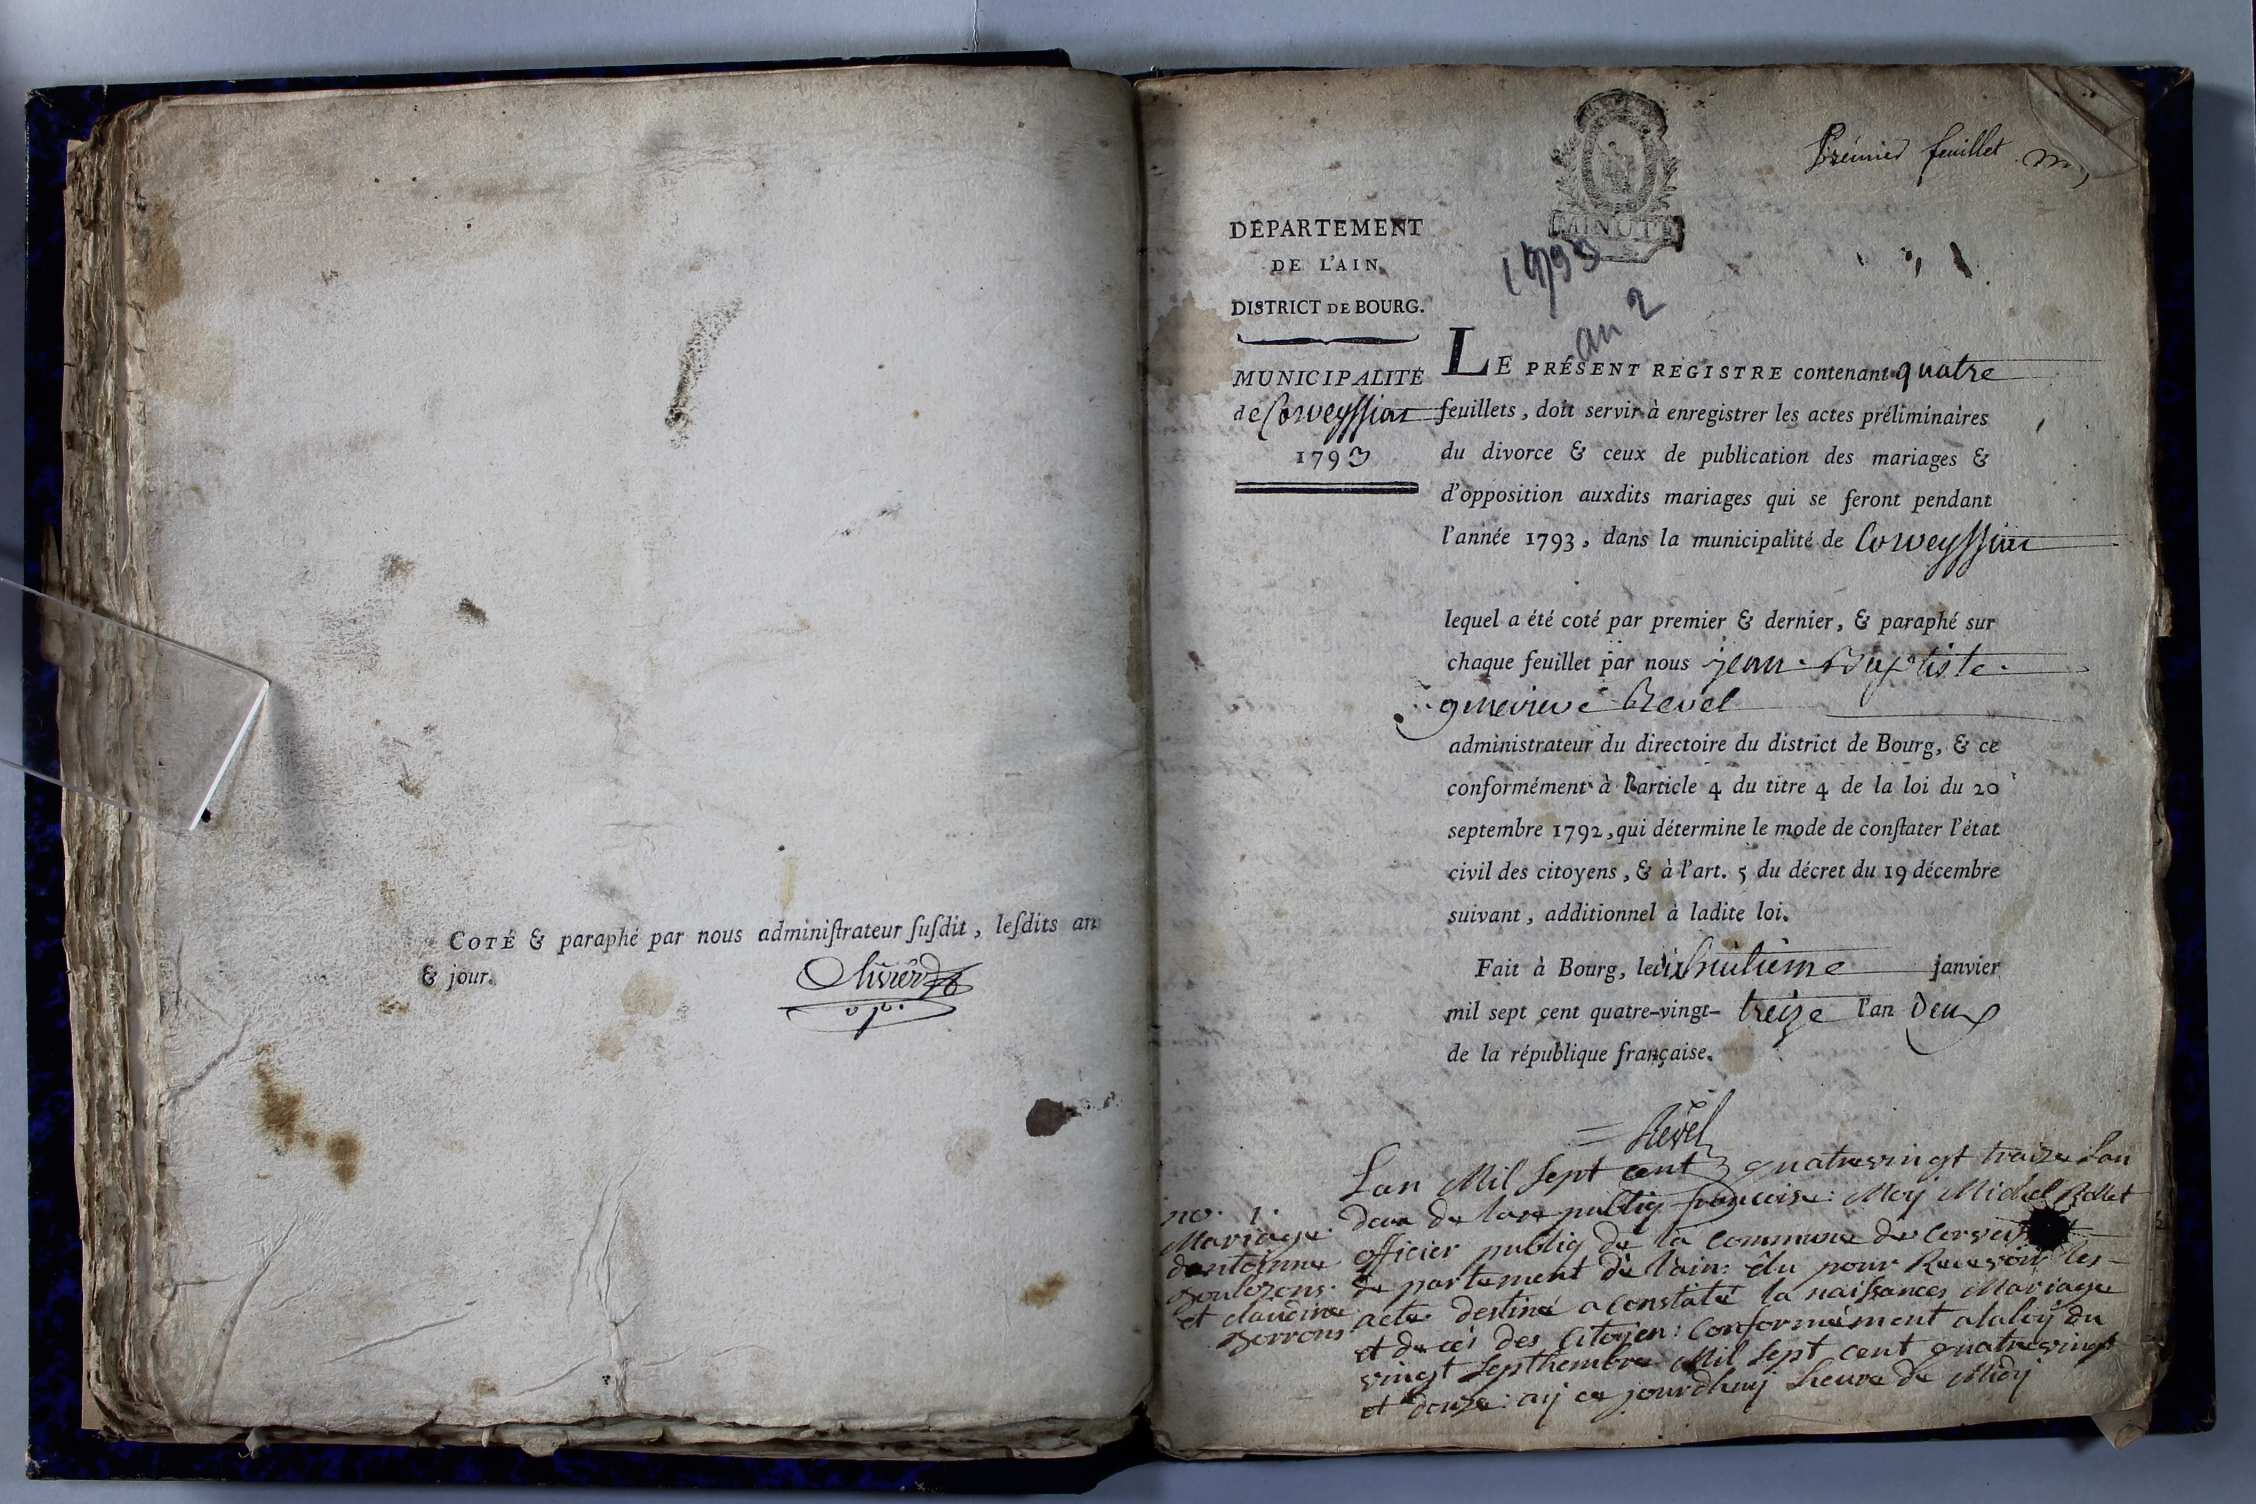 COTÉ & paraphé par nous adminiſtrateur ſuſdit, leſdits an
& jour.
Olivier
v. p.
Prémier feuillet
MINUTE
1793
an 2
DÉPARTEMENT
DE L'AIN.
DISTRICT DE BOURG.
MUNICIPALITÉ
de Corveyssiat
1793
LE PRÉSENT REGISTRE contenant quatre
feuillets, doit servir à enregistrer les actes préliminaires
du divorce & ceux de publication des mariages &
d'opposition auxdits mariages qui se feront pendant
l'année 1793, dans la municipalité de Corveyssiat
lequel a été coté par premier & dernier, & paraphé sur
chaque feuillet par nous jean Baptiste
genevieve Revel
administrateur du directoire du district de Bourg, & ce
conformément à l'article 4 du titre 4 de la loi du 20
septembre 1792, qui détermine le mode de conſtater l'état
civil des citoyens, & à l'art. 5 du décret du 19 décembre
suivant, additionnel à ladite loi.
Fait à Bourg, le dixhuitieme janvier
mil sept cent quatre-vingt- treize l'an deux
de la république française.
Revel
no. 1.
Mariage
dantoinne
et claudine
Lan Mil Sept cent quatrevingt traize Lan
deux de la republiq francoise: Moy Michel Rollet
officier publiq de la commune de
departement de lain: élu pour Recevoir les
acte destiné a constaté la naissances Mariage
et decéi des Citoyen: Conformément alaloy du
vingt Septhembre Mil Sept cent quatrevingt
et douze: aij ce jourdhuij heure de Midij